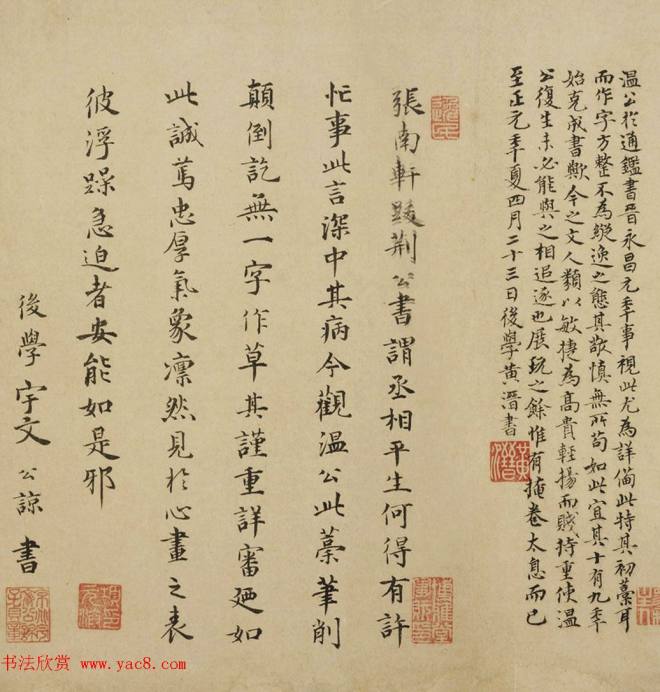 溫公於通鑑書晉永昌元年事視此尤為詳備此特其初藁耳
而作字方整不為縱逸之態其敬慎無所苟如此宜其十有九年
始克成書歟今之文人類以敏捷為高貴輕揚而賤持重使溫
公復生未必能與之相追逐也展玩之餘惟有掩卷太息而已
至正元年夏四月二十三日後學黃溍書
張南軒跋荆公書謂丞相平生何得有許
忙事此言深中其病今觀溫公此藁筆削
顛倒訖無一字作草其謹重詳審廼如
此誠篤忠厚氣象凛然見於心畫之表
彼浮躁急迫者安能如是邪
後學宇文公諒書
书法欣赏 www.yac8.com